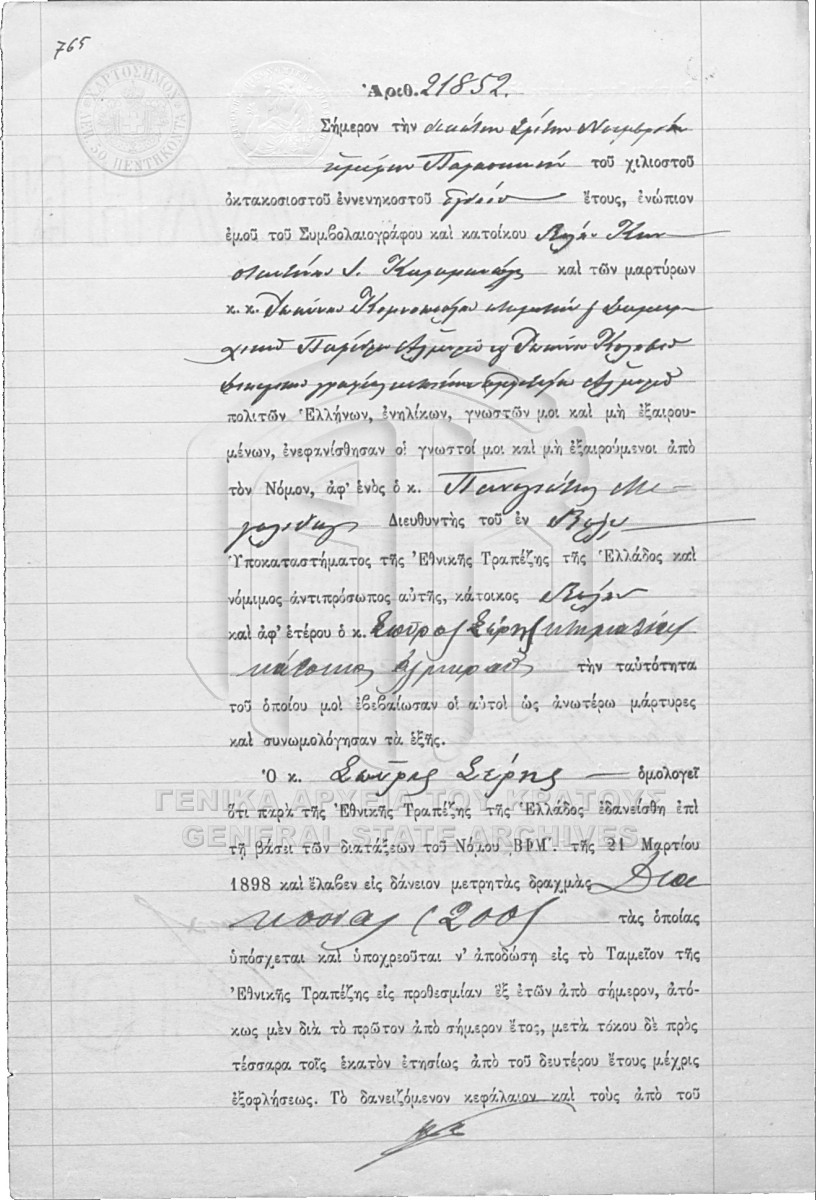 765
ΧΑΡΤΟΣΗΜΟΝ
ΔΡ. 50. ΠΕΝΤΗΚΟΝΤΑ
Ἀριθ. 21852.
Σήμερον τὴν δεκάτην τρίτην Νοεμβρίου
ἡμέραν Παρασκευὴν τοῦ χιλιοστοῦ
ὀκτακοσιοστοῦ ἐννενηκοστοῦ ὀγδόου ἔτους, ἐνώπιον
ἐμοῦ τοῦ Συμβολαιογράφου καὶ κατοίκου Βόλου Κων
σταντίνου καὶ τῶν μαρτύρων
κ. κ. Ἰωάννου
Ἁλμυροῦ Ἰωάννου
Ἁλμυροῦ
πολιτῶν Ἑλλήνων, ἐνηλίκων, γνωστῶν μοι καὶ μὴ ἐξαιρου-
μένων, ἐνεφανίσθησαν οἱ γνωστοί μοι καὶ μὴ ἐξαιρούμενοι ἀπὸ
τὸν Νόμον, ἀφ' ἑνὸς ὁ κ. Παναγιώτης
Διευθυντὴς τοῦ ἐν Βόλῳ
Ὑποκαταστήματος τῆς Ἐθνικῆς Τραπέζης τῆς Ἑλλάδος καὶ
νόμιμος ἀντιπρόσωπος αὐτῆς, κάτοικος Βόλου
καὶ ἀφ' ἑτέρου ὁ κ. Σπῦρος Σέρης κτηματίας
κάτοικος Ἁλμυροῦ τὴν ταὐτότητα
τοῦ ὁποίου μοὶ ἐβεβαίωσαν οἱ αὐτοὶ ὡς ἀνωτέρω μάρτυρες
καὶ συνωμολόγησαν τὰ ἑξῆς.
Ὁ κ. Σπῦρος Σέρης ὁμολογεῖ
ΓΕΝΙΚΑ ΑΡΧΕΙΑ ΤΟΥ ΚΡΑΤΟΥΣ
ὅτι παρὰ τῆς Ἐθνικῆς Τραπέζης τῆς Ἑλλάδος ἐδανείσθη ἐπὶ
GENERAL STATE ARCHIVES
τῇ βάσει τῶν διατάξεων τοῦ Νόμου ΒΦΜ'. τῆς 21 Μαρτίου
1898 καὶ ἔλαβεν εἰς δάνειον μετρητὰς δραχμὰς Δια
κοσίας (200) τὰς ὁποίας
ὑπόσχεται καὶ ὑποχρεοῦται ν' ἀποδώσῃ εἰς τὸ Ταμεῖον τῆς
Ἐθνικῆς Τραπέζης εἰς προθεσμίαν ἓξ ἐτῶν ἀπὸ σήμερον, ἀτό-
κως μὲν διὰ τὸ πρῶτον ἀπὸ σήμερον ἔτος, μετὰ τόκου δὲ πρὸς
τέσσαρα τοῖς ἑκατὸν ἐτησίως ἀπὸ τοῦ δευτέρου ἔτους μέχρις
ἐξοφλήσεως. Τὸ δανειζόμενον κεφάλαιον καὶ τοὺς ἀπὸ τοῦ